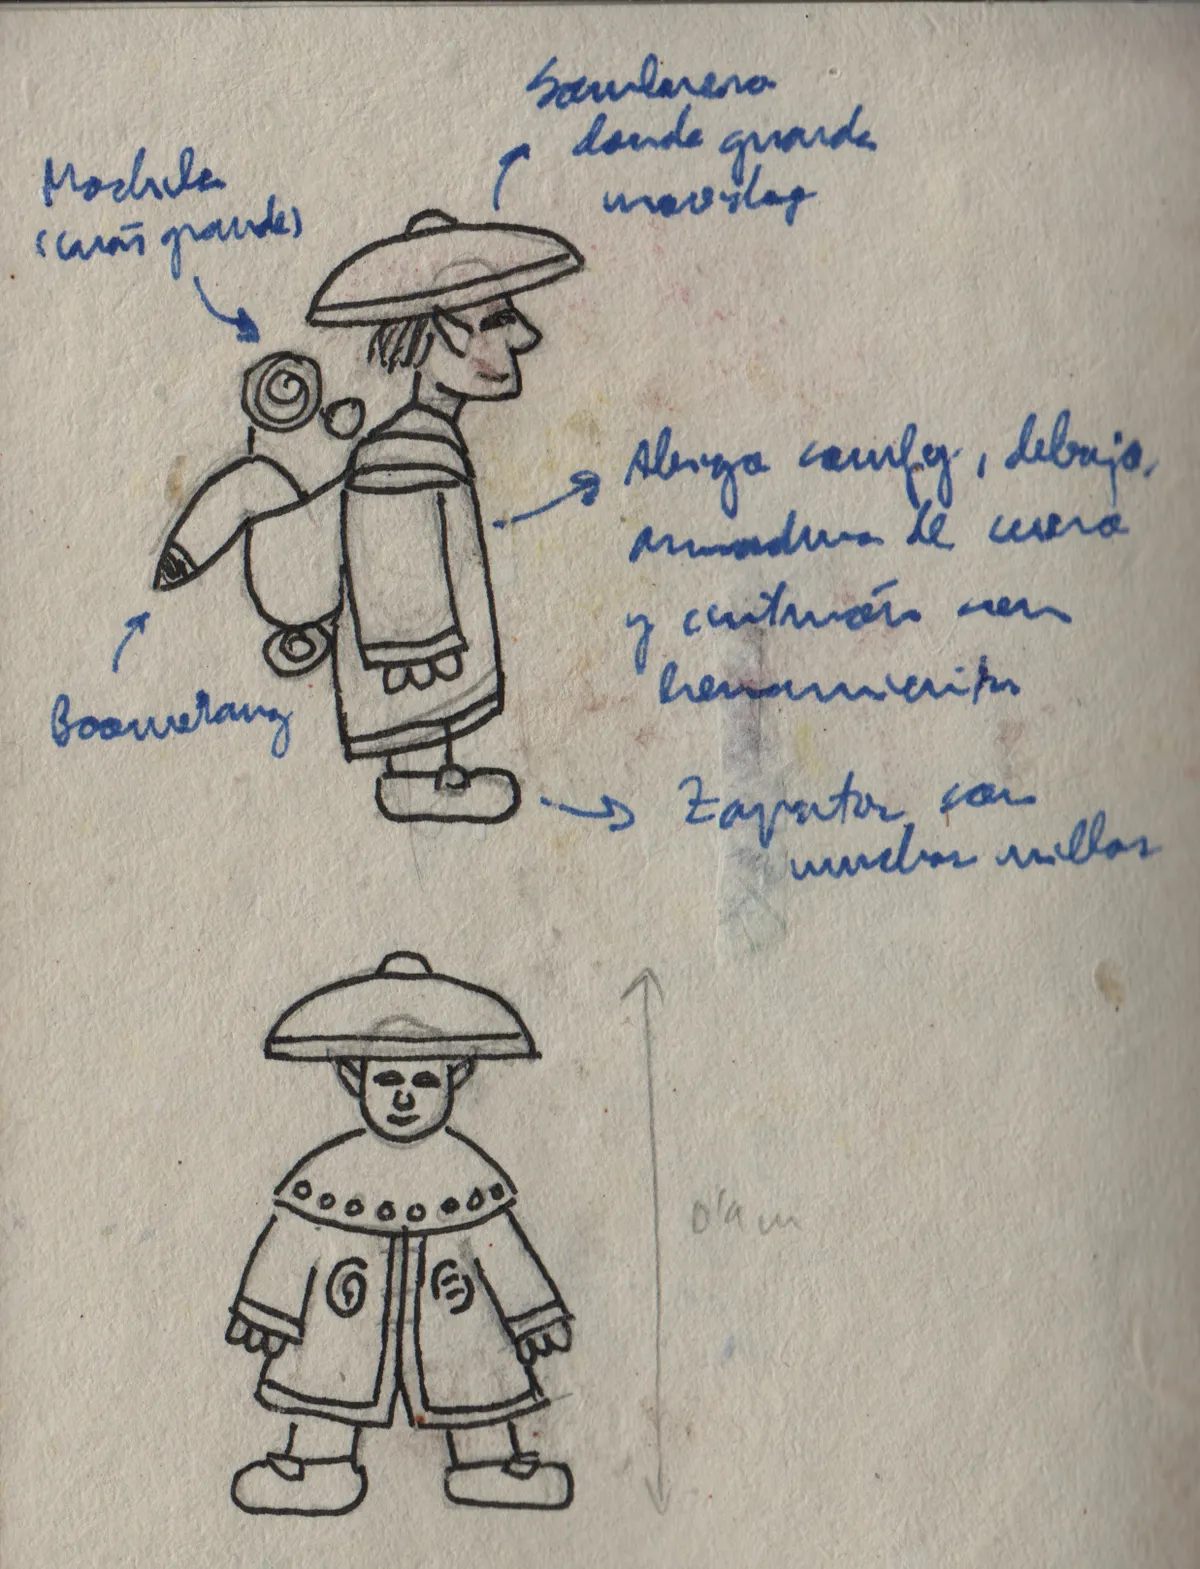 Sombrero
donde guarda
Mochila
(más grande)
Abrigo , debajo,
armadura de cuero
y cinturón con
herramientas
Boomerang
Zapatos con
muchos
0'9 m